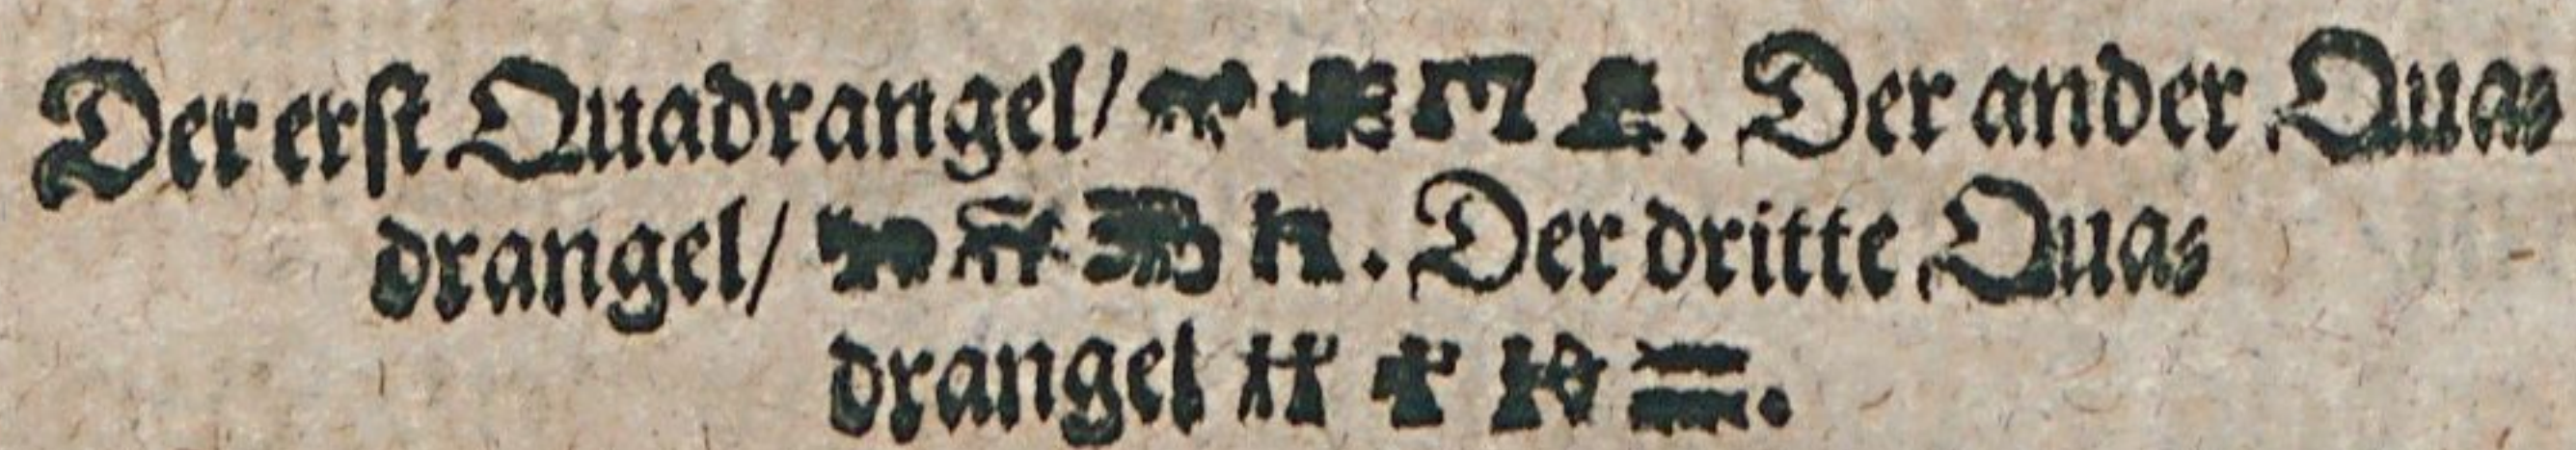 Der erst Quadrangel/ . Der ander Qua⸗
drangel/ . Der dritte Qua⸗
drangel .